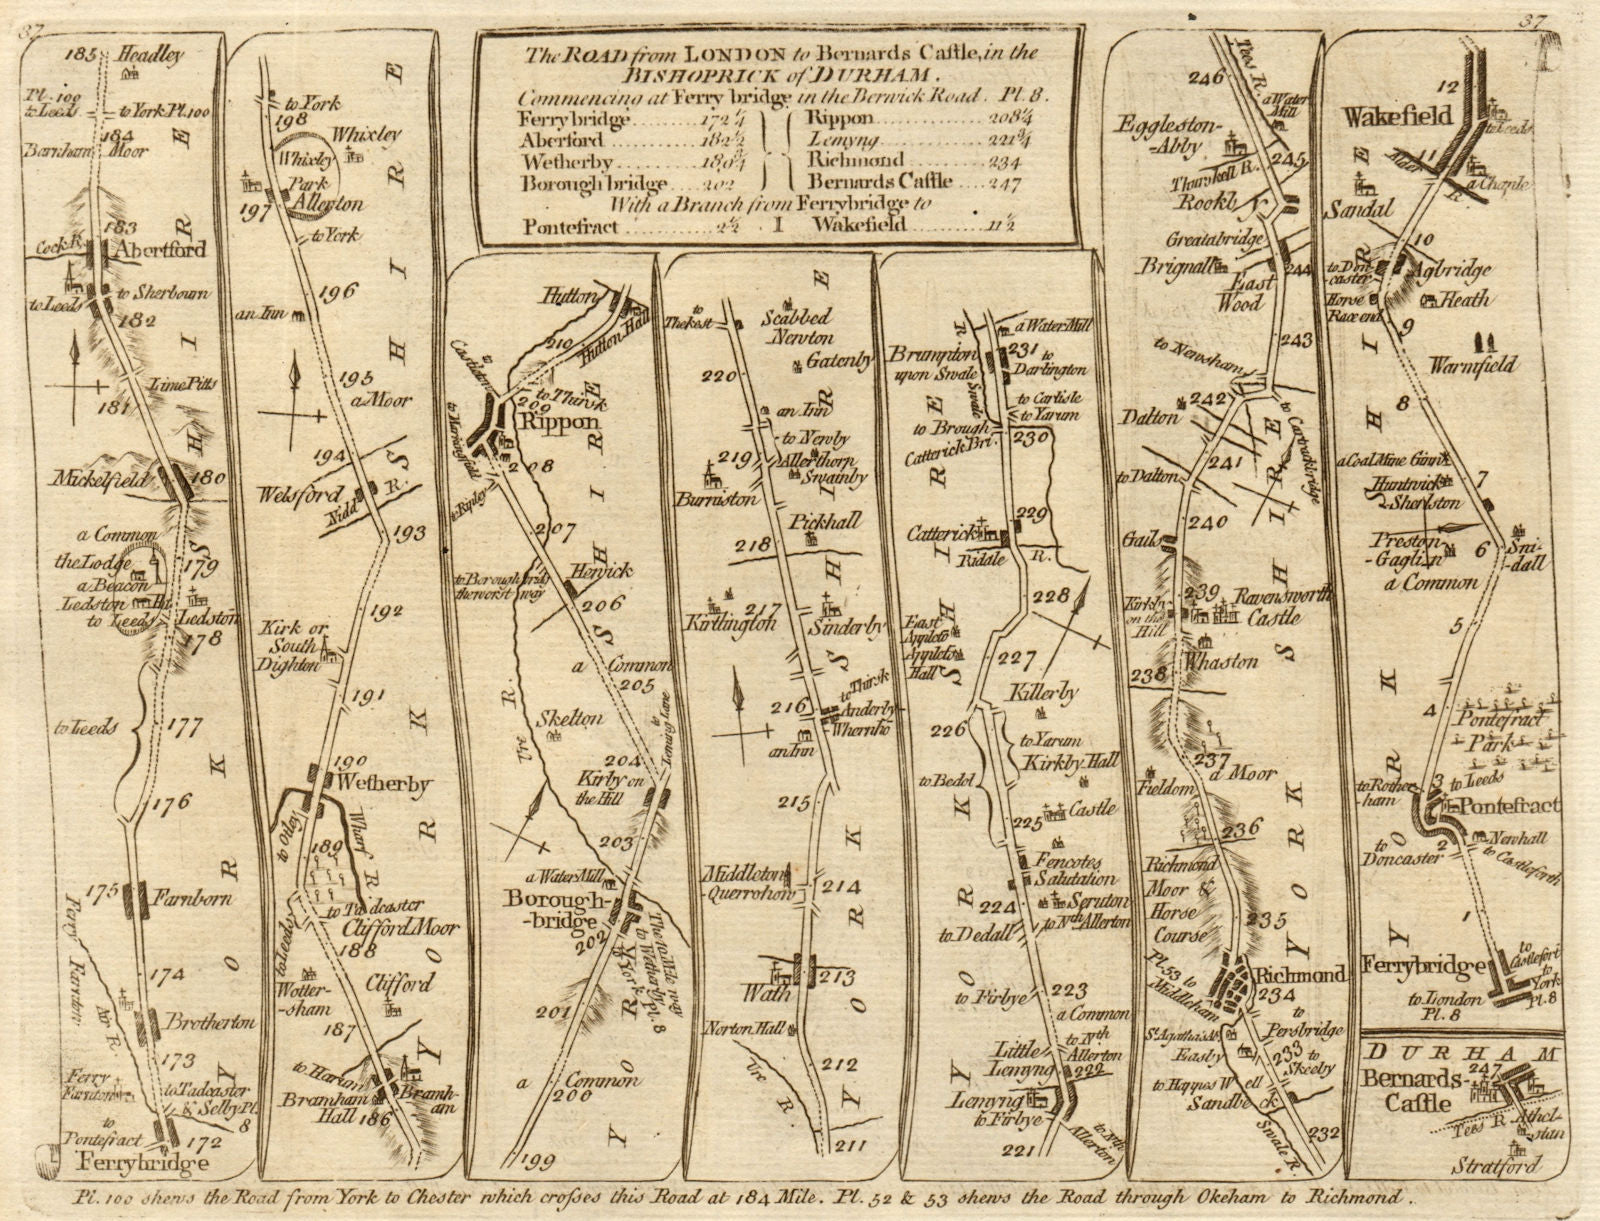 37
37
The ROAD from LONDON to Bernards Castle, in the
BISHOPRICK of DURHAM.
Commencing at Ferry bridge in the Berwick Road. Pl. 8.
Ferrybridge 172¼
Aberford 182½
Wetherby 189¾
Borough bridge 202
Rippon 208¼
Lemyng 221¾
Richmond 234
Bernards Castle 247
With a Branch from Ferrybridge to
Pontefract 2½ I Wakefield 11½
185 Headley
Pl. 100
to Leeds
to York Pl. 100
184
Barnham Moor
183
Cock R.
Abertford
to Leeds
to Sherbourn
182
Lime Pitts
181
Mickelfield
180
a Common
the Lodge
179
a Beacon
Ledston H.
to Leeds
Ledston
178
to Leeds
177
176
175
Farnborn
174
Ferry Farnton
Air R.
Brotherton
173
Ferry
Farnton
to Tadcaster
& Selby Pl.
8
to
Pontefract
172
Ferrybridge
YORKSHIRE
to York
198
Whixley
Whixley
Park
Allerton
197
to York
196
an Inn
195
a Moor
194
Welsford
Nidd R.
193
192
Kirk or
South
Dighton
191
190
Wetherby
to Otley
Wharf R.
189
to Tadcaster
Clifford Moor
to Leeds
188
Wotter-
-sham
Clifford
187
to Harum
Bramham
Hall
Bramh-
am
186
YORKSHIRE
Hutton
Hutton Hall
210
to Castledon
to Thirsk
209
Rippon
208
to Ripley
207
to Borough bridg
the worst way
Hewick
206
a Common
205
Ure R.
Skelton
204
Kirby on
the Hill
to Leming Lane
203
a Water Mill
Borough-
-bridge
202
to York
201
a Common
200
199
YORKSHIRE
to
Thekest
Scabbed
Newton
Gatenby
220
an Inn
to Newby
219
Allerthorp
Swainby
Burniston
Pickhall
218
217
Kirtlington
Sinderby
to Thirsk
216
Anderby
Whernho
an Inn
215
Middleton
-Querrohow
214
213
Wath
Norton Hall
212
Ure R
211
YORKSHIRE
R. Swale
a Water Mill
231
to
Darlington
Brumpton
upon Swale
to Carlisle
to Yarum
to Brough
Catterick Bri.
230
229
Catterick
Riddle R.
228
East
Appleto
Appleto
Hall
227
Killerby
226
to Yarum
Kirkby Hall
to Bedel
Castle
225
Fencotes
Salutation
224
Scruton
to Nth Allerton
to Dedall
to Firbye
223
a Common
Little
Lemyng
to Nth
Allerton
222
Lemyng
to Firbye
to Nth Allerton
221
YORKSHIRE
Tees R.
246
a Water
Mill
Eggleston-
-Abby
245
Thurskell R.
Rookby
Greatabridge
Brignall
244
East
Wood
243
to Newsham
242
Dalton
to Cartuckbridge
241
to Dalton
240
Gails
239
Kirkby
on the
Hill
Ravensworth
Castle
Whaston
238
237
a Moor
Fieldom
236
Richmond
Moor &
Horse
Course
235
Pl. 53 to
Middleham
Richmond
234
to
Persbridge
St. Agatha's Ab.
Easby
233
to
Skeeby
to Happes Well
Sandbeck
Swale R.
232
YORKSHIRE
12
Wakefield
to Leeds
11
a Chaple
Sandal
10
to Don-
caster
Agbridge
Horse
Race end
Heath
9
Warmfield
8
a Coal Mine Ginn
7
Huntwick
Sherlston
Preston-
-Gaglin
6
Sni-
dall
a Common
5
4
Pontefract
Park
3
to Leeds
to Rother-
-ham
Pontefract
to
Doncaster
2
Newhall
to Castleforth
1
to
Castlefort
to
York
Pl. 8
Ferrybridge
to London
Pl. 8
YORKSHIRE
DURHAM
247
Bernards-
Castle
Tees R
Athel-
stan
Stratford
Pl. 100 shews the Road from York to Chester which crosses this Road at 184 Mile. Pl. 52 & 53 shews the Road through Okeham to Richmond.